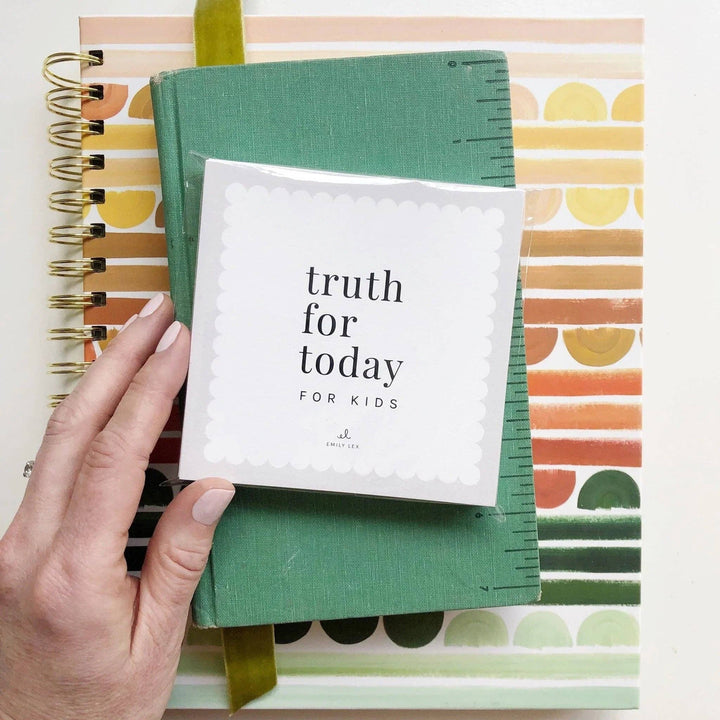 truth
for
today
FOR KIDS
el
EMILY LEX